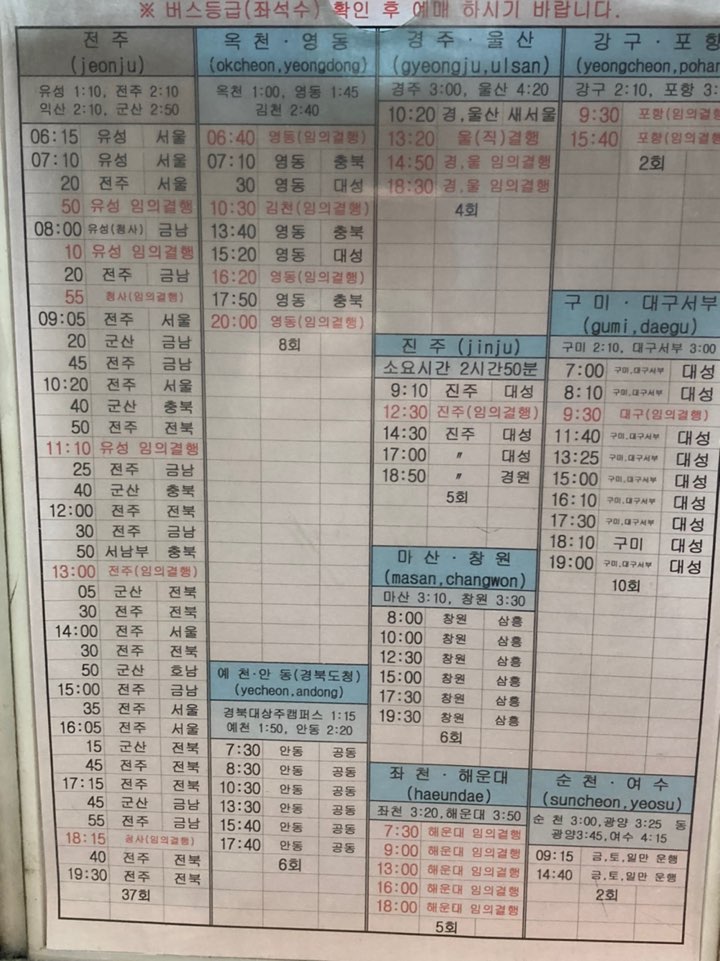 ※ 버스등급(좌석수) 확인 후 예매 하시기 바랍니다.
전 주
(jeonju)
유성 1:10, 전주 2:10
익산 2:10, 군산 2:50
06:15 유성 서울
07:10 유성 서울
20 전주 서울
50 유성 임의결행
08:00 유성(청사) 금남
10 유성 임의결행
20 전주 금남
55 청사(임의결행)
09:05 전주 서울
20 군산 금남
45 전주 금남
10:20 전주 서울
40 군산 충북
50 전주 전북
11:10 유성 임의결행
25 전주 금남
40 군산 충북
12:00 전주 전북
30 전주 금남
50 서남부 충북
13:00 전주(임의결행)
05 군산 전북
30 전주 전북
14:00 전주 서울
30 전주 전북
50 군산 호남
15:00 전주 금남
35 전주 서울
16:05 전주 서울
15 군산 전북
45 전주 전북
17:15 전주 전북
45 군산 금남
55 전주 금남
18:15 청사(임의결행)
40 전주 전북
19:30 전주 전북
37회
옥천 · 영동
(okcheon,yeongdong)
옥천 1:00, 영동 1:45
김천 2:40
06:40 영동(임의결행)
07:10 영동 충북
30 영동 대성
10:30 김천(임의결행)
13:40 영동 충북
15:20 영동 대성
16:20 영동(임의결행)
17:50 영동 충북
20:00 영동(임의결행)
8회
예 천·안 동(경북도청)
(yecheon,andong)
경북대상주캠퍼스 1:15
예천 1:50, 안동 2:20
7:30 안동 공동
8:30 안동 공동
10:30 안동 공동
13:30 안동 공동
15:40 안동 공동
17:40 안동 공동
6회
경주 · 울산
(gyeongju,ulsan)
경주 3:00, 울산 4:20
10:20 경,울산 새서울
13:20 울(직)결행
14:50 경,울 임의결행
18:30 경,울 임의결행
4회
진 주 (jinju)
소요시간 2시간50분
9:10 진주 대성
12:30 진주(임의결행)
14:30 진주 대성
17:00 〃 대성
18:50 〃 경원
5회
마 산 · 창 원
(masan,changwon)
마산 3:10, 창원 3:30
8:00 창원 삼흥
10:00 창원 삼흥
12:30 창원 삼흥
15:00 창원 삼흥
17:30 창원 삼흥
19:30 창원 삼흥
6회
좌 천 · 해운대
(haeundae)
좌천 3:20,해운대 3:50
7:30 해운대 임의결행
9:00 해운대 임의결행
13:00 해운대 임의결행
16:00 해운대 임의결행
18:00 해운대 임의결행
5회
강구 · 포항
(yeongcheon,pohan
강구 2:10, 포항 3:
9:30 포항(임의결행
15:40 포항(임의결행
2회
구 미 · 대구서부
(gumi,daegu)
구미 2:10, 대구서부 3:00
7:00 구미,대구서부 대성
8:10 구미,대구서부 대성
9:30 대구(임의결행)
11:40 구미,대구서부 대성
13:25 구미,대구서부 대성
15:00 구미,대구서부 대성
16:10 구미,대구서부 대성
17:30 구미,대구서부 대성
18:10 구미 대성
19:00 구미,대구서부 대성
10회
순 천 · 여 수
(suncheon,yeosu)
순 천 3:00,광양 3:25 동
광양3:45,여수 4:15
09:15 금,토,일만 운행
14:40 금,토,일만 운행
2회